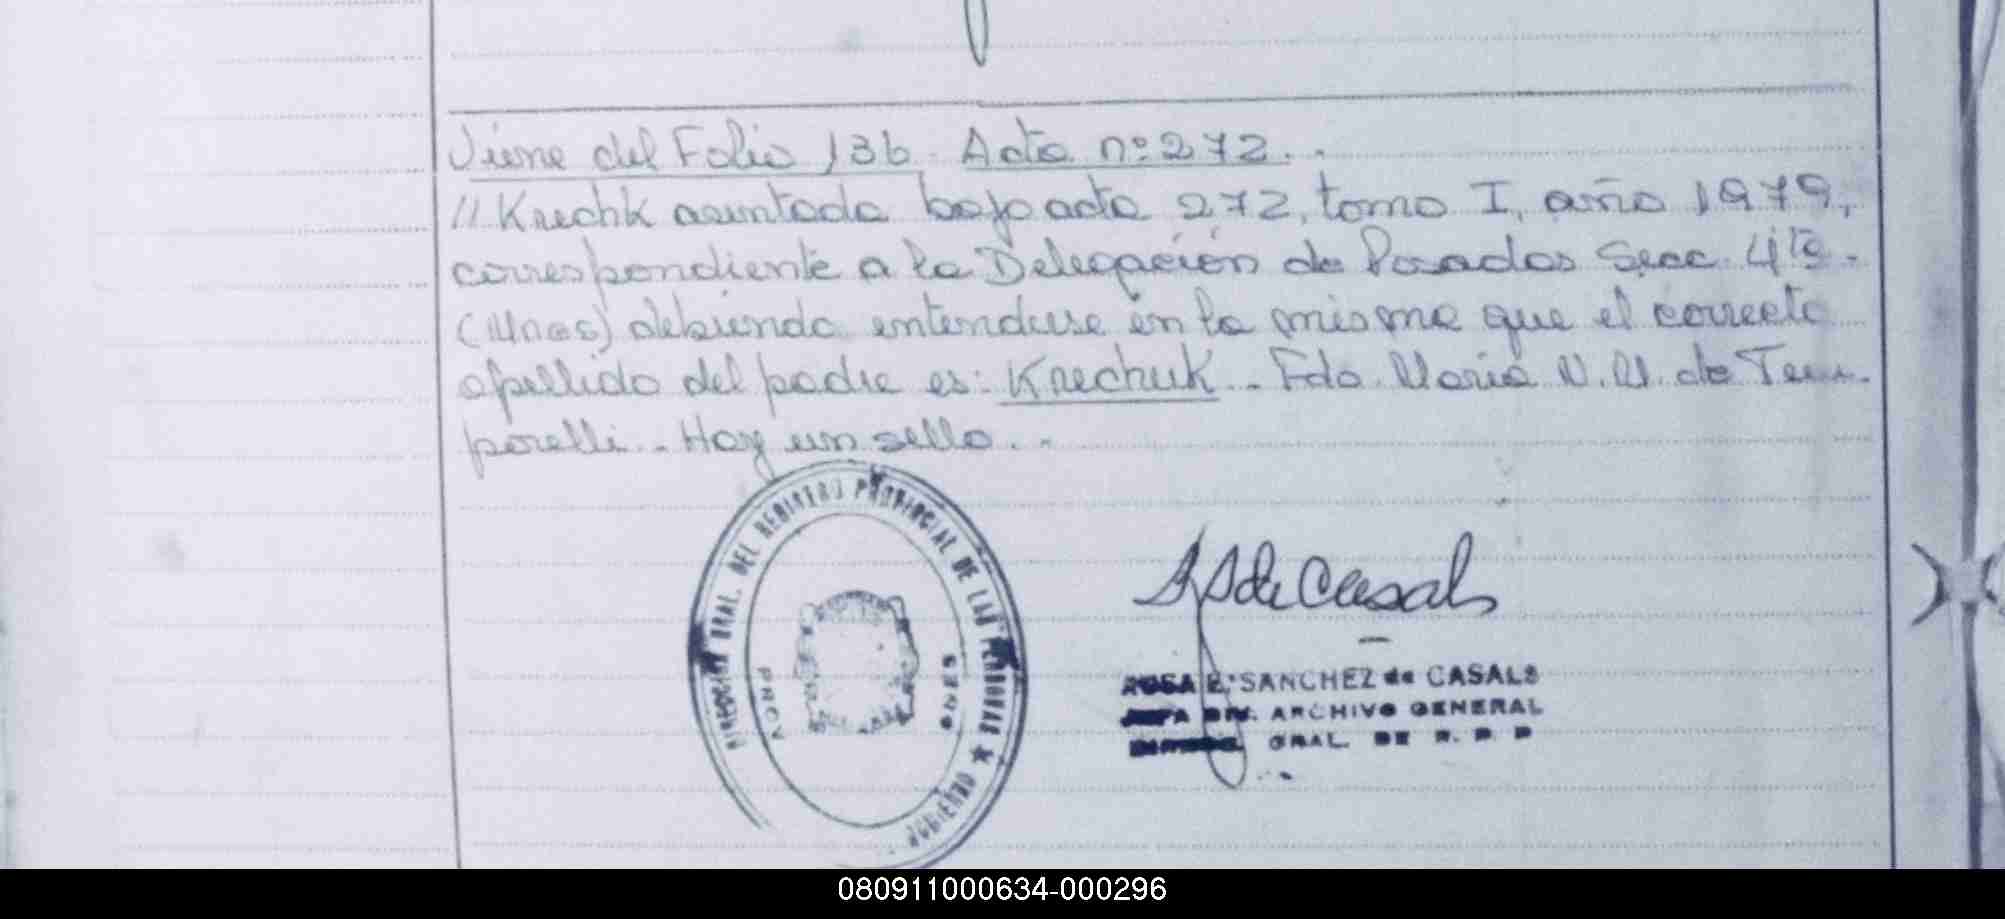 Viene del Folio 136. Acta nº 272..
// Krechk asentada bajo acta 272, tomo I, año 1979,
correspondiente a la Delegación de Posadas Secc. 4ta.
debiendo entenderse en la misma que el correcto
apellido del padre es: Krechuk.. Fdo. María N. M. de Tem-
porelli.. Hay un sello..
DIRECCION GRAL. DEL REGISTRO PROVINCIAL DE LAS PERSONAS ★ GOBIERNO
PROV.
R S de Casals
ROSA E. SANCHEZ de CASALS
JEFA DIV. ARCHIVO GENERAL
GRAL. DE R. P. P
080911000634-000296